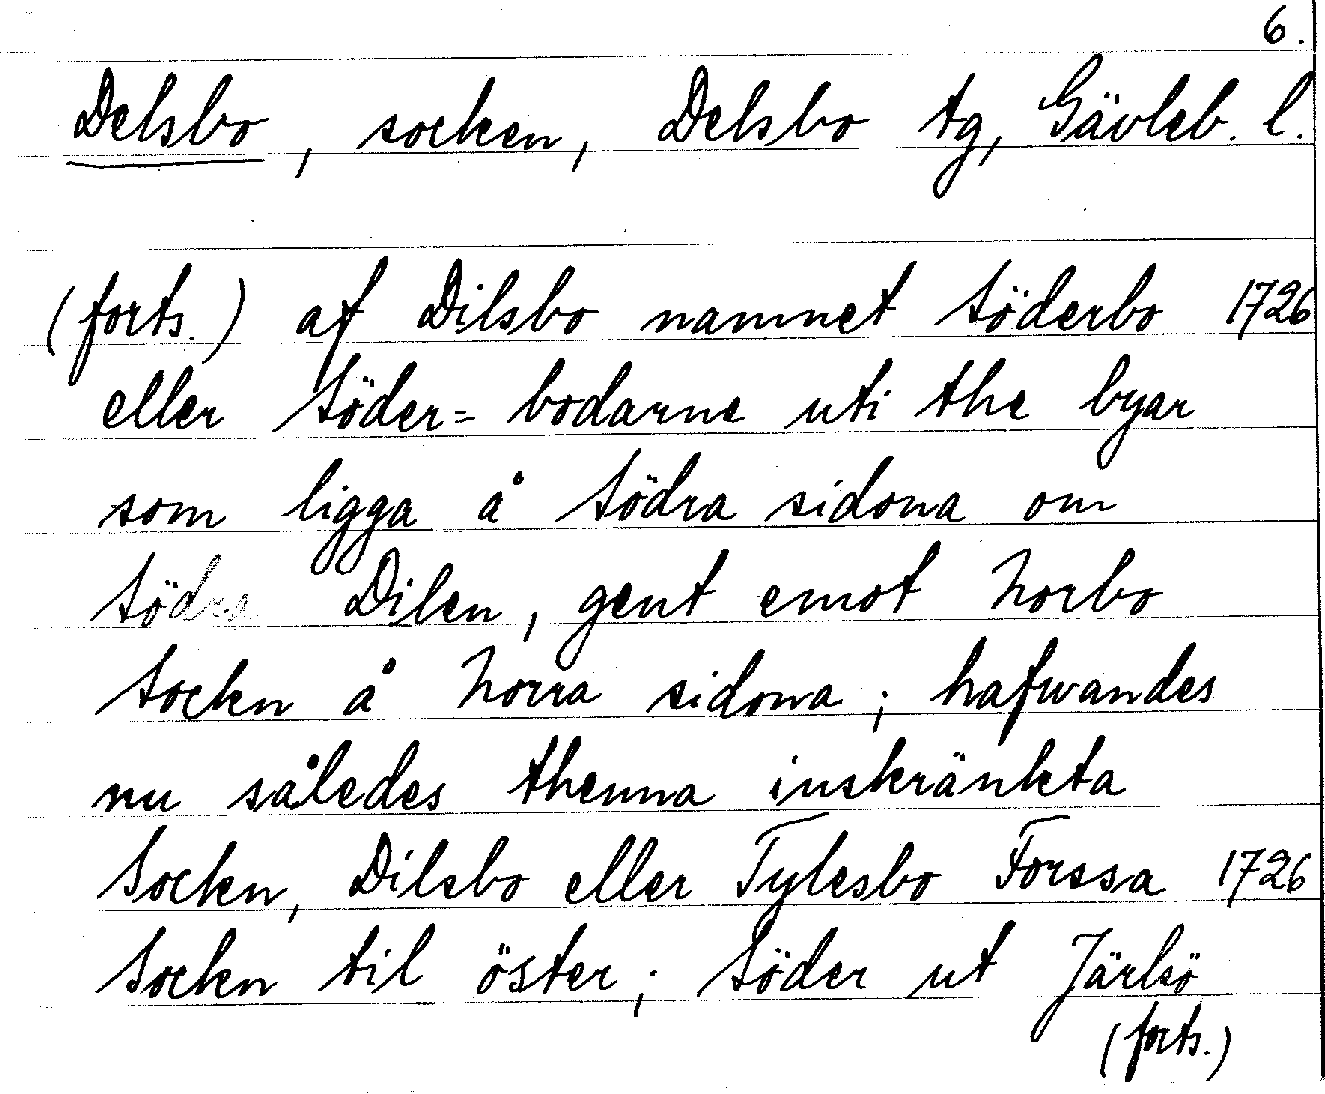 6.
Delsbo, socken, Delsbo tg, Gävleb. l.
(forts.) af Dilsbo namnet Söderbo 1726
eller Söder= bodarne uti the byar
som ligga å Södra sidona om
Södra Dilen, gent emot Norbo
Socken å Norra sidona; hafwandes
nu således thenna inskränkta
Socken, Dilsbo eller Tylesbo Forssa 1726
Socken til öster; Söder ut Järlsö
(forts.)